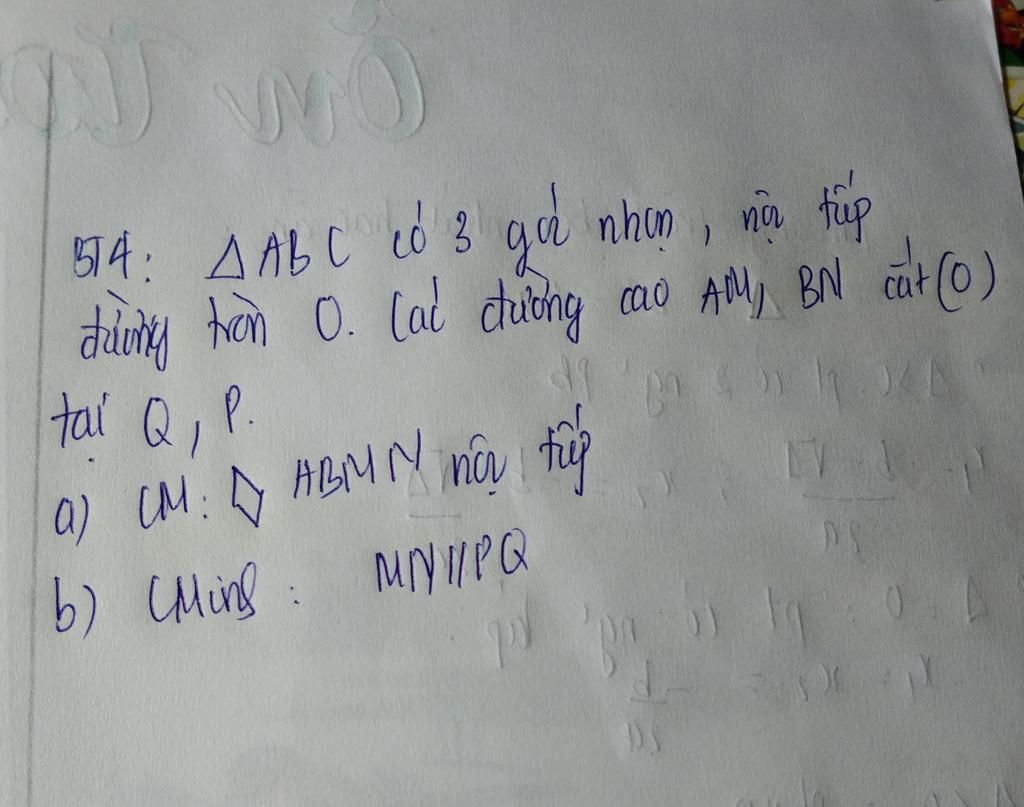 BT4: △ABC có 3 góc nhọn, nội tiếp
đường tròn O. Các đường cao AM, BN cắt (O)
tại Q, P.
a) CM: ◇ ABMN nội tiếp
b) CMinh : MN//PQ